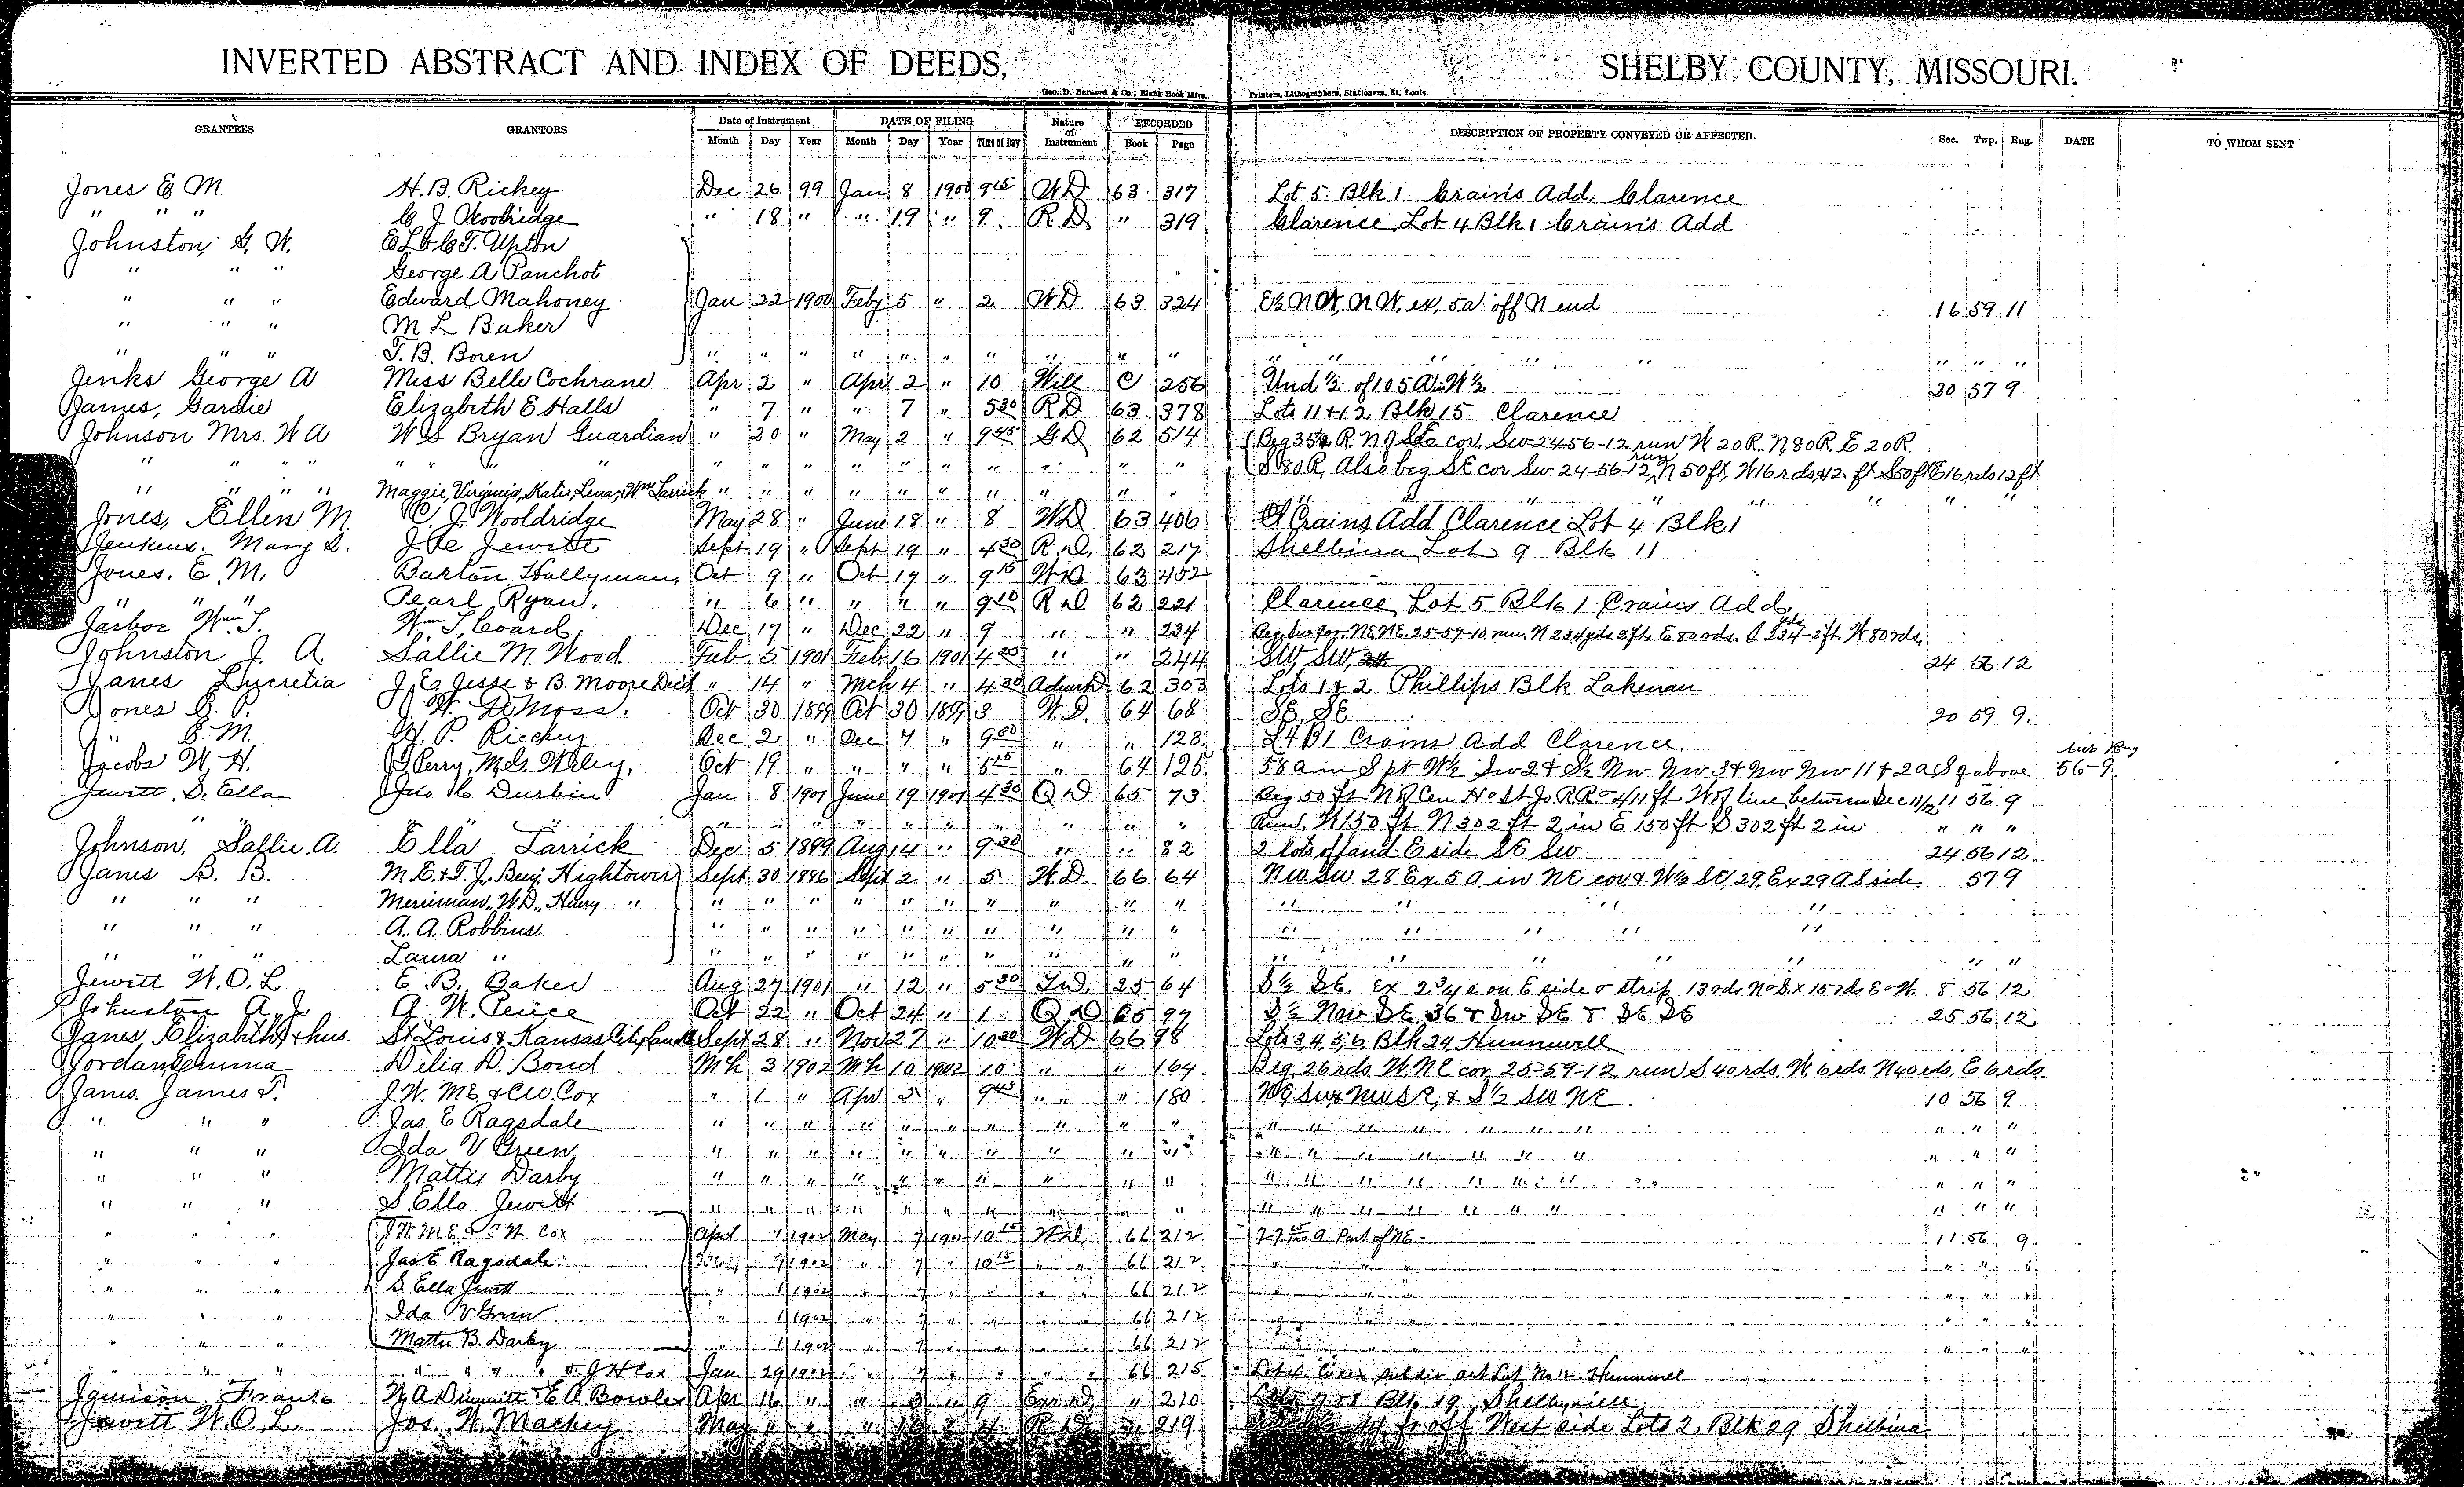 INVERTED ABSTRACT AND INDEX OF DEEDS, SHELBY COUNTY, MISSOURI.
Geo. D. Barnard & Co., Blank Book Mfrs., Printers, Lithographers, Stationers, St. Louis.
GRANTEES GRANTORS Date of Instrument DATE OF FILING Nature of Instrument RECORDED DESCRIPTION OF PROPERTY CONVEYED OR AFFECTED Sec. Twp. Rng. DATE TO WHOM SENT
Month Day Year Month Day Year Time of Day Book Page
Jones E M. H. B. Rickey Dec 26 99 Jan 8 1900 9 15 W D 63 317 Lot 5 Blk 1 Crain's Add. Clarence
" " " C. J. Wooldridge " 18 " " 19 " 9 R. D. " 319 Clarence Lot 4 Blk 1 Crain's Add
Johnston, G. W. E L & C T. Upton
" " " George A Panchot
" " " Edward Mahoney Jan 22 1900 Feby 5 " 2 W D 63 324 E½ N W, N W, ex, 5a off N end 16 59 11
" " " M L Baker
" " " T. B. Boren " " " " " " " " " " " " " " " " " "
Jenks George A Miss Belle Cochrane Apr 2 " Apr 2 " 10 Will C 256 Und ½ of 105 A in W½ 30 57 9
James, Gardie Elizabeth E Halls " 7 " " 7 " 5 30 R D 63 378 Lots 11 & 12 Blk 15 Clarence
Johnson Mrs. W A W S Bryan Guardian " 20 " May 2 " 9 45 G D 62 514 Beg 35½ R N of SE cor. Sw 24-56-12 run W 20 R. N 80 R. E 20 R.
" " " " " " " " " " " " " " " " " S 80 R, Also beg SE cor Sw 24-56-12, run N 50 ft, W 16 rds, 12 ft S 50 ft E 16 rds 12 ft
" " " " Maggie, Virginia, Katie, Lena, & Wm Larrick " " " " " " " " " " " " " " " "
Jones, Ellen M. C. J. Wooldridge May 28 " June 18 " 8 W D 63 406 Crains Add Clarence Lot 4 Blk 1
Jenkens. Mary S. Jewitt Sept 19 " Sept 19 " 4 30 R. D. 62 217 Shelbina Lot 9 Blk 11
Jones. E. M. Barton Hollyman, Oct 9 " Oct 19 " 9 15 W D 63 452
" " " Pearl Ryan. " 6 " " " " 9 10 R D 62 221 Clarence Lot 5 Blk 1 Crains Add
Jarboe Wm T. Wm T. Coard Dec 17 " Dec 22 " 9 " " 234 Beg. Sw cor. NE NE. 25-57-10 run. N 234 yds 2 ft. E 80 rds. S 234 yds - 2 ft. W 80 rds.
Johnston J. A. Sallie M. Wood Feb 5 1901 Feb 16 1901 4 30 " " 244 SW SW, 24 56 12
Janes Lucretia J. E. Jesse & B. Moore Decd " 14 " Mch 4 " 4 30 62 303 Lots 1 & 2 Phillips Blk Lakenan
Jones J. W. DeMoss. Oct 30 1899 Oct 30 1899 3 W. D. 64 68 SE. SE 20 59 9.
" E. M. H. P. Riechey Dec 2 " Dec 4 " 9 00 " " 128 L4 B1 Crains Add Clarence.
Jacobs W. H. J Perry, M. S. Wiley, Oct 19 " " " " 64 125 58 a in S pt W½ Sw 2 & S½ Nw Nw 3 & Nw Nw 11 & 2a S of above 56-9
Jewitt, S. Ella Jno C. Durbin Jan 8 1901 June 19 1901 4 30 Q D 65 73 Beg 50 ft N of Cen H & St Jo R R - 411 ft W of line between Sec 11/12 11 56 9
" " " " " " " " " " " " Run. W 150 ft N 302 ft 2 in E 150 ft S 302 ft 2 in " " "
Johnson, Sallie A. Ella Larrick Dec 5 1899 Aug 14 " 9 30 " " 82 2 lots of land E side SE Sw 24 56 12
Janes B. B. M. E. & T. J., Benj. Hightower Sept 30 1886 Sept 2 " 5 W. D. 66 64 NW SW 28 Ex 5 a in NE cor & W½ SE, 29, Ex 29 A S side 57 9
" " " Merriman, W. D., Henry " " " " " " " " " " " " " " "
" " " A. A. Robbins " " " " " " " " " " " " " "
" " " Laura " " " " " " " " " " " " " " " " "
Jewitt W. O. L. E. B. Baker Aug 27 1901 " 12 " 5 30 25 64 S½ SE. Ex 2¾ a on E side & strip 13 rds N & S x 15 rds E & W. 8 56 12
Johnston A. J. A. W. Pence Oct 22 " Oct 24 " 1 Q D 65 97 S½ Nw SE 36 & Sw SE & SE SE 25 56 12
Janes, Elizabeth & hus. St Louis & Kansas City Land Sept 28 " Nov 27 " 10 30 W D 66 98 Lots 3, 4, 5, 6 Blk 24 Hunnewell
Jordan Emma Delia D. Bond Mch 3 1902 Mch 10 1902 10 " " 164 Beg 26 rds W. NE cor 25-59-12 run S 40 rds. W. 6 rds. N 40 rds. E 6 rds
Janes. James T. J. W. M E. & C W. Cox " 1 " Apr 5 " 9 45 " " 180 NE SW & NW SE, & S½ SW NE 10 56 9
" " " Jas. E Ragsdale " " " " " " " " " " " " " " " " " "
" " " Ida V Green " " " " " " " " " " " " " " " " " "
" " " Mattie Darby " " " " " " " " " " " " " " " " "
" " " S. Ella Jewitt " " " " " " " " " " " " " " " " " "
" " " J W. M E. & C W Cox April 1 1902 May 7 1902 10 15 W D 66 212 A Part of NE 11 56 9
" " " Jas E Ragsdale 1902 " 7 " 10 15 " " 66 212 " " " "
" " " S Ella Jewitt " 1 1902 " 7 " " " " 66 212 " " " "
" " " Ida V Green " 1 1902 " 7 " " " " 66 212 " " " "
" " " Mattie B. Darby " 1 1902 " 7 " " " " 66 212 " " " "
" " " " " " " & J H Cox Jan 29 1902 " 7 " " " 66 215 Hunnewell
Jamison Frank W. A Dimmitt & E A Bowles Apr 16 " " 3 " 9 " 210 Blk 19 Shelbyville
Jewitt W. O. L. Jos. W. Mackey May " " " R D 219 ft off West side Lots 2 Blk 29 Shelbina